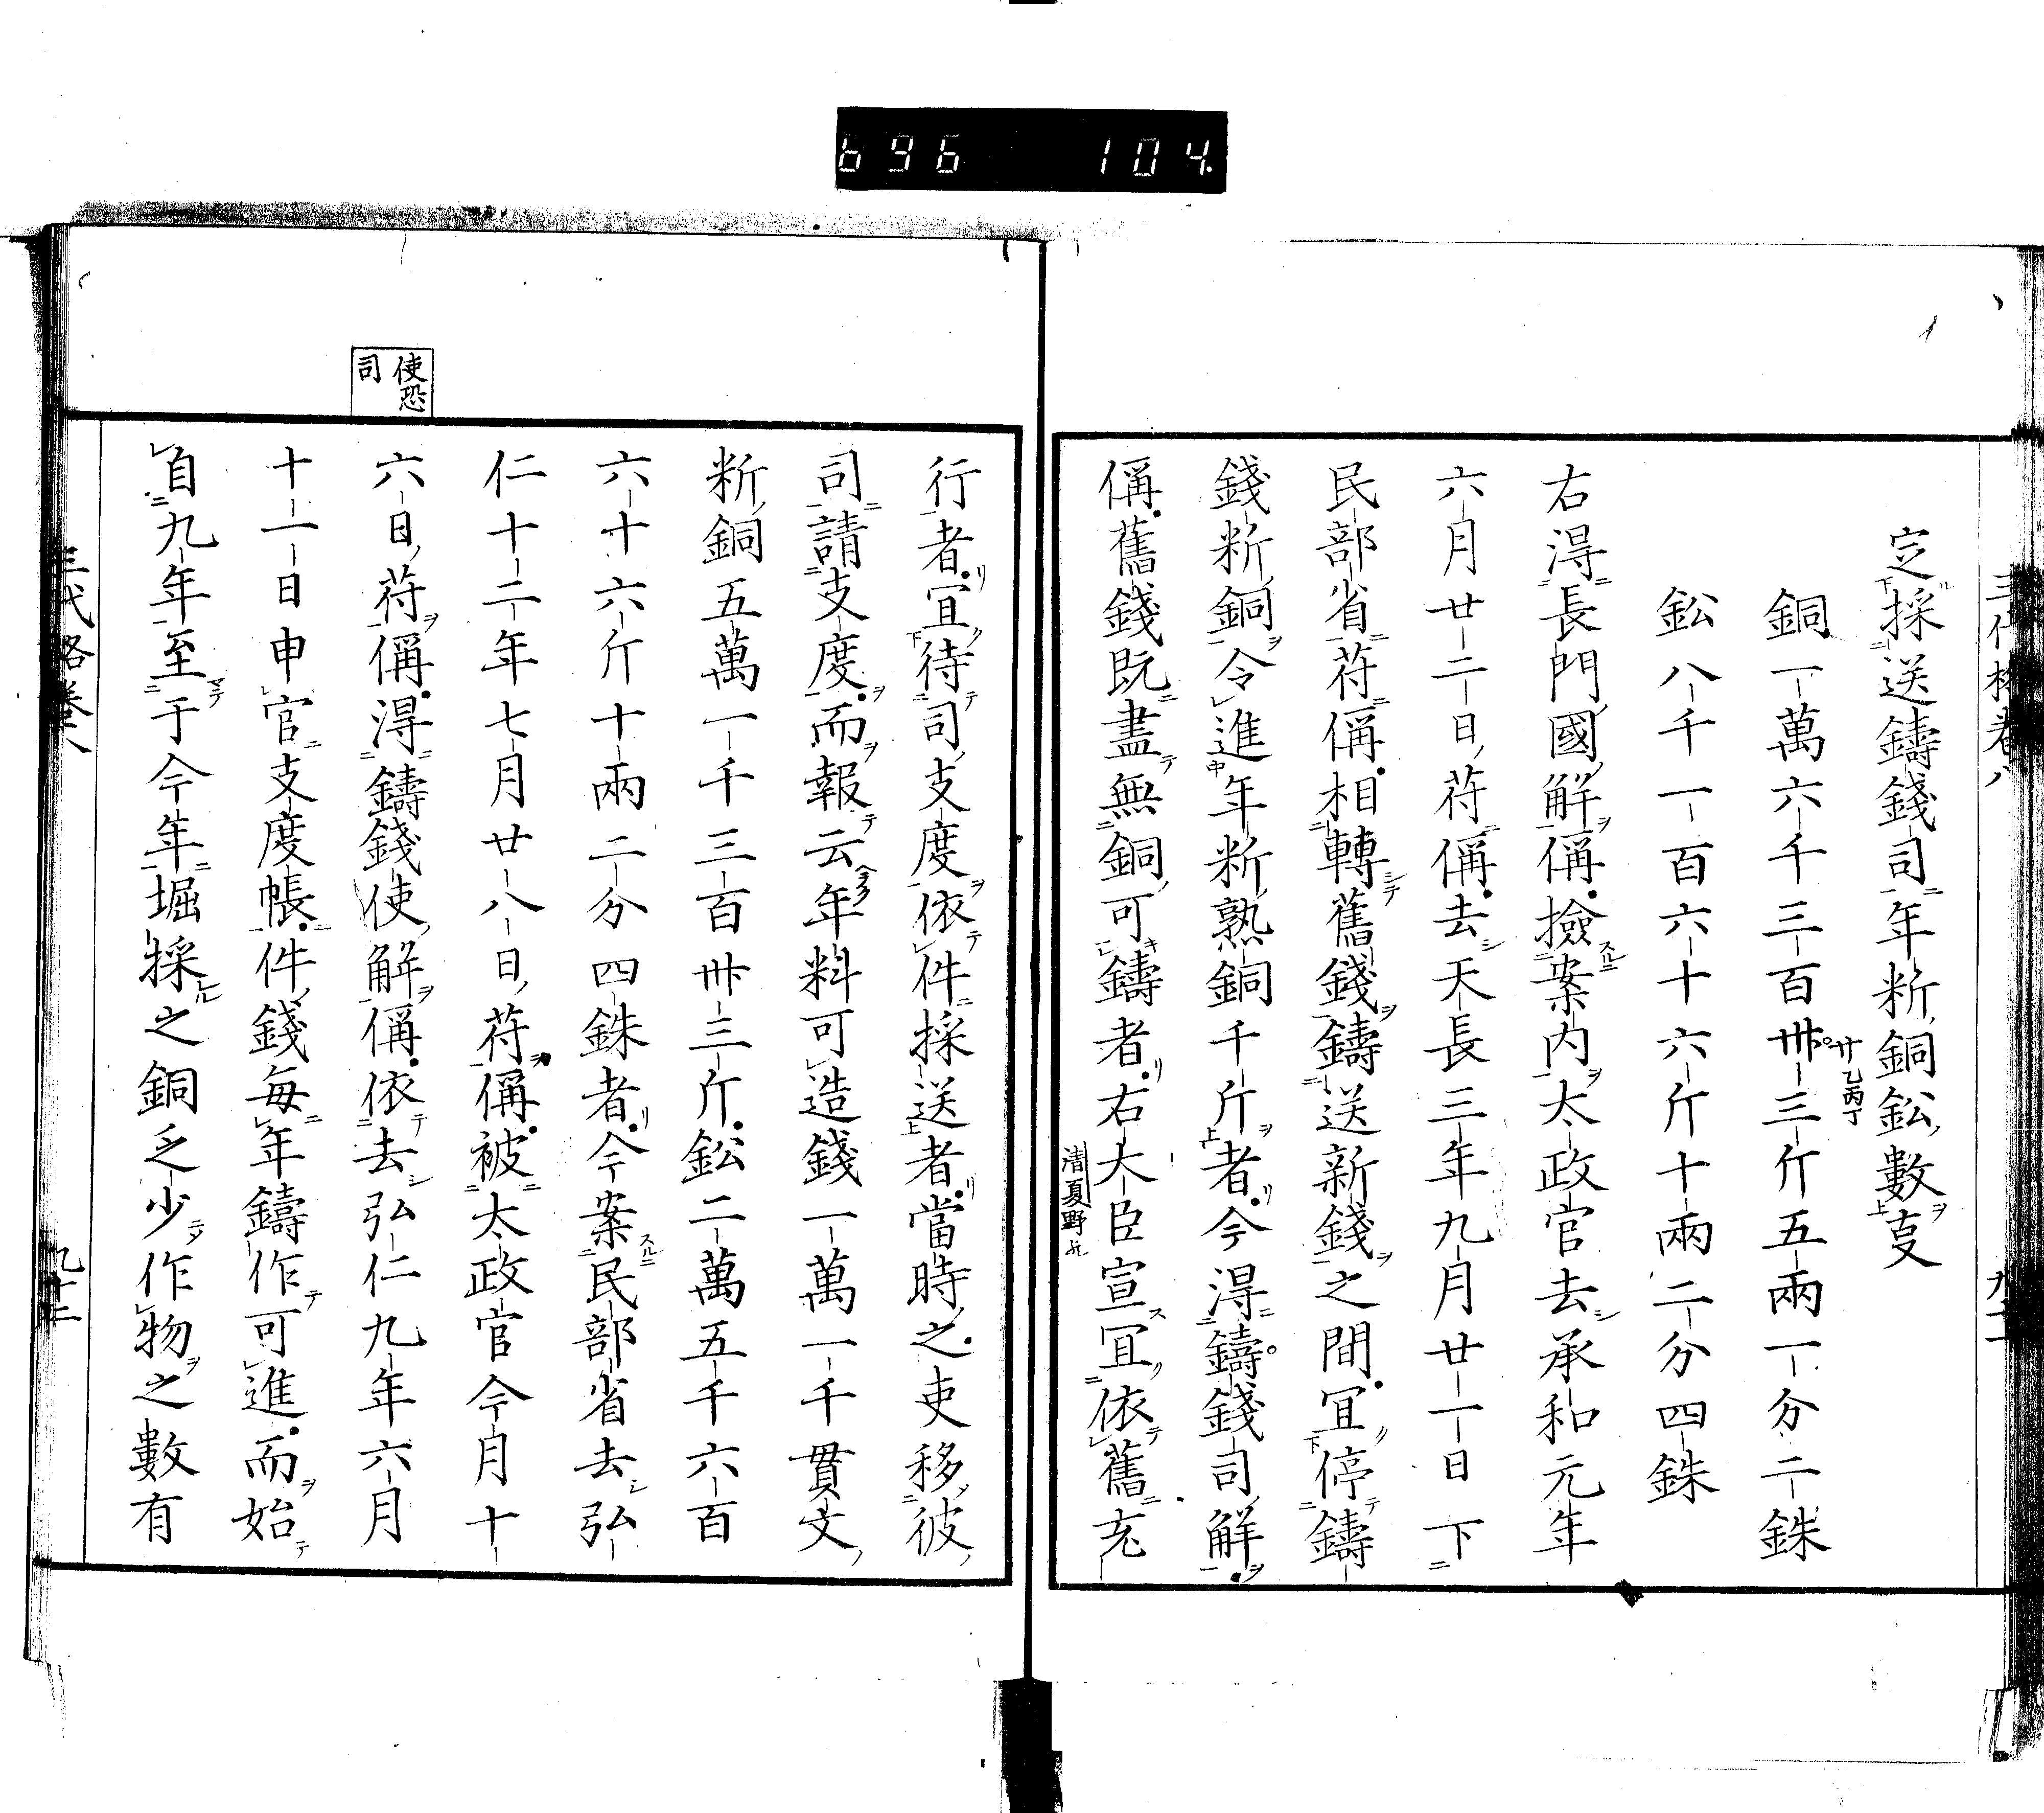 696 104
三代格卷八 九十二
定採送鑄錢司年断銅鈆數叓
銅一萬六千三百卅三斤五兩一分二銖
廿乙丙丁
鈆八千一百六十六斤十兩二分四銖
右淂長門國解偁撿案内太政官去承和元年
六月廿二日苻偁去天長三年九月廿一日下
民部省苻偁相轉舊錢鑄送新錢之間冝停鑄
錢断銅令進年断熟銅千斤者今淂鑄錢司觧
偁舊錢既盡無銅可鑄者右大臣宣冝依舊充
清夏野
行者冝待司支度依件採送者當時之吏移彼
司請支度而報云年料可造錢一萬一千貫文
断銅五萬一千三百卅三斤鈆二萬五千六百
六十六斤十兩二分四銖者今案民部省去弘
仁十二年七月廿八日苻偁被太政官今月十
使恐
司
六日苻偁淂鑄錢使解偁依去弘仁九年六月
十一日申官支度帳件錢毎年鑄作可進而始
自九年至于今年堀採之銅乏少作物之數有
三代格卷八 九十二